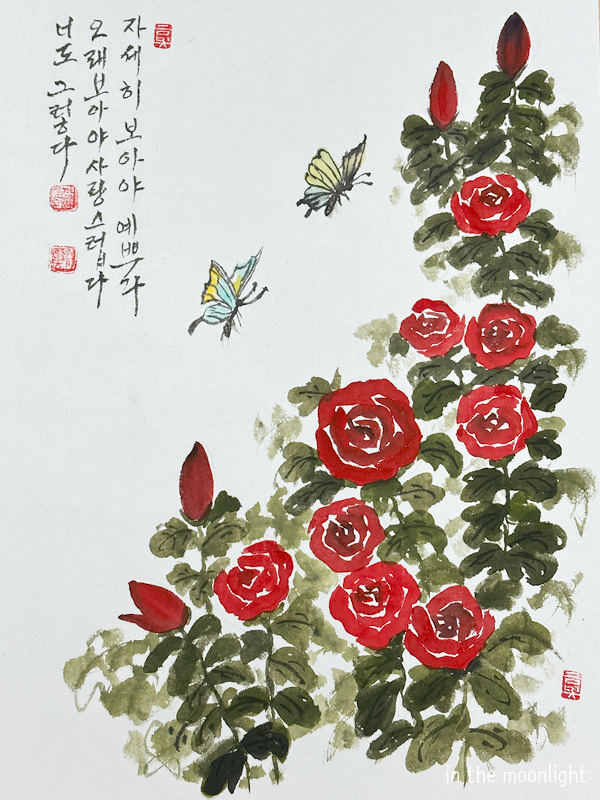 자세히 보아야 예쁘다
오래 보아야 사랑스럽다
너도 그렇다
in the moonlight